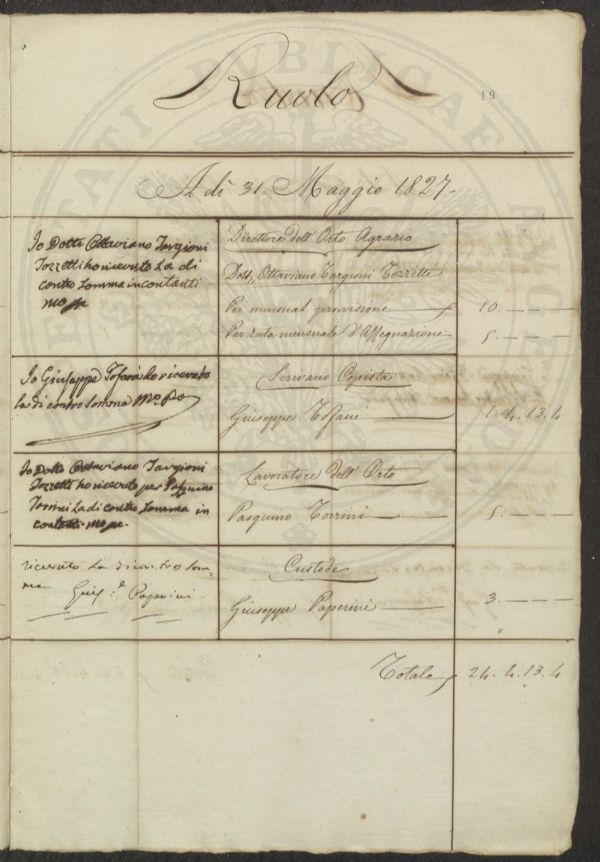 19
Ruolo
A dì 31 Maggio 1827
Io Dotte Ottaviano Targioni
Tozzetti ho ricevuto La di
contro Somma in contanti
Direttore dell' Orto Agrario
Dott. Ottaviano Targioni Tozzetti
Per mensual provvisione 10. — —
Per rata mensuale d'Assegnazione 5. — —
Io Giuseppe Tofani ho ricevuto
la di contro Somma Mo Po
Scrivano Copista
Giuseppe Tofani 1. 4. 13. 4
Io Dotte Ottaviano Targioni
Tozzetti ho ricevuto per Pasquino
Torrini La di contro Somma in
contanti
Lavoratore dell' Orto
Pasquino Torrini 5. — —
ricevuto La di contro Som=
ma
Giuse Paperini
Custode
Giuseppe Paperini 3. — —
"
Totale 24. 4. 13. 4